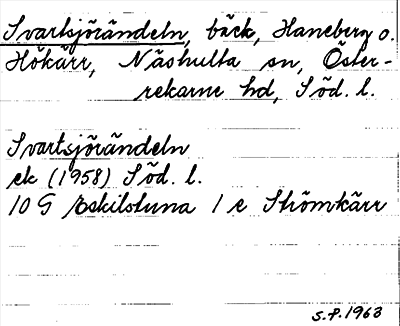 Svartsjörändeln, bäck, Haneberg o.
Hökärr, Näshulta sn, Öster-
rekarne hd, Söd. l.
Svartsjörändeln
ek (1958) Söd. l.
10 G Eskilstuna 1 e Strömkärr
S.P. 1963